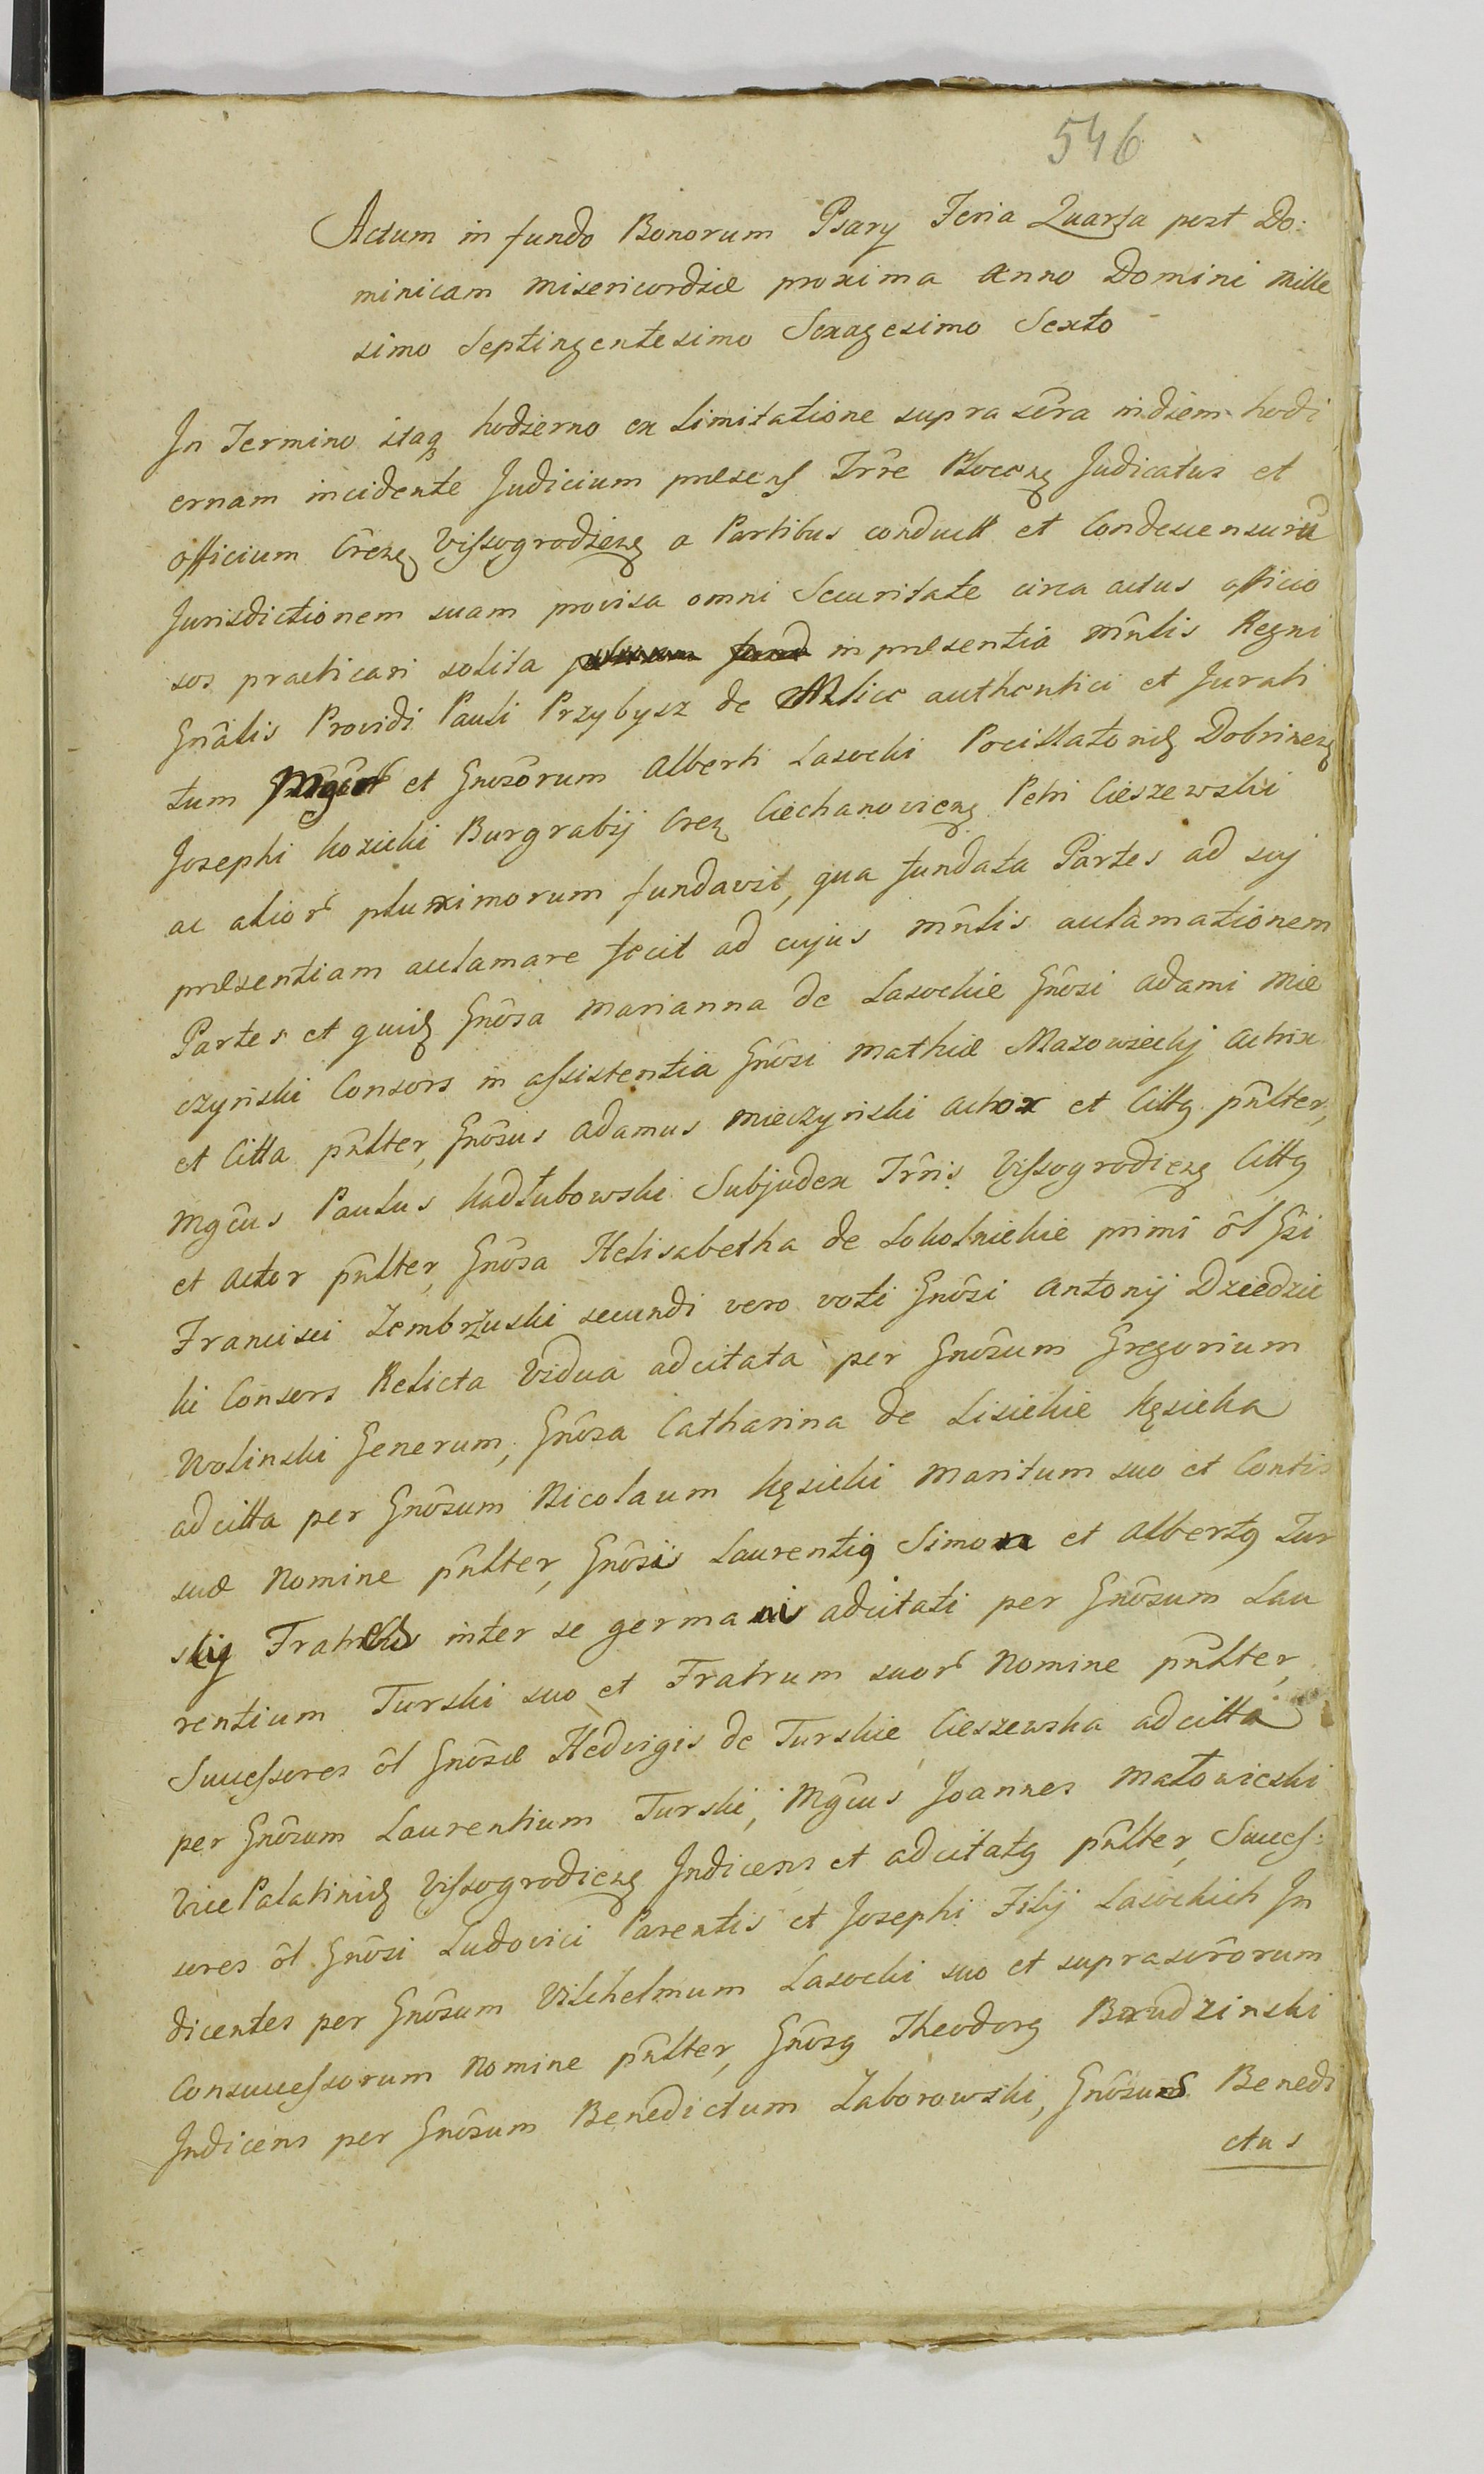 546
Actum in fundo Bonorum Psary Feria Quarta post Do:
minicam Misericordiæ proxima Anno Domini Mille
simo Septingentesimo Sexagesimo Sexto
In Termino itaq hodierno ex Limitatione supra scra indiem hodi
ernam incidente Judicium præsens Trre Plocen Judicatus et
officium Crense Vissogrodiens a Partibus conduct et Condescensurũ
Jurisdictionem suam provisa omni Securitate circa actus officio
sos practicari solita in præsentia Mnlis Regni
Gnãlis Providi Pauli Przybysz de Mlice authentici et Jurati
tum et Gnosorum Alberti Lasocki Pocillatoris Dobrinens
Josephi Kozicki Burgrabij Cren Ciechanoviens Petri Cieszewski
ac alior plurimorum fundavit, qua fundata Partes ad sui
præsentiam acclamare fecit ad cujus Mnlis acclamationem
Partes et quid Gnosa Marianna de Lasockie Gnosi Adami Mie
czyński Consors in assistentia Gnosi Mathiæ Mazowiecki Actrix
et Citta pnlter, Gnosus Adamus Mieczyński Actor et Citt9 pnlter,
Mgcus Paulus Kadłubowski Subjudex Trris Vissogrodiens Citt9
et Actor pnlter, Gnosa Helisabetha de Sokolnickie primi ol Gsi
Francisci Zembrzuski secundi vero voti Gnosi Antonij Dziedzic
ki Consors Relicta Vidua adcitata per Gnosum Gregorium
Wolinski Generum, Gnosa Catharina de Lisickie Kęsicka
adcitta per Gnosum Nicolaum Kęsicki Maritum suo et Contis
suæ Nomine pnlter, Gnosi Laurenti9 Simon et Albert9 Tur
scy Fratres inter se germani adcitati per Gnosum Lau
rentium Turski suo et Fratrum suor Nomine pnlter,
Successores ol Gnosæ Hedvigis de Turskie Cieszewska adcitta
per Gnosum Laurentium Turski, Mgcus Joannes Małowieski
Vice Palatinid Vissogrodiens Indicens et adcitat9 pnlter, Succes:
sores ol Gnosi Ludovici Parentis et Josephi Filij Lasockich In
dicentes per Gnosum Vilhelmum Lasocki suo et suprascrorum
Consuccessorum Nomine pnlter, Gnos9 Theodor9 Brudzinski
Indicens per Gnosum Benedictum Zaborowski, Gnosus Benedi
ctus